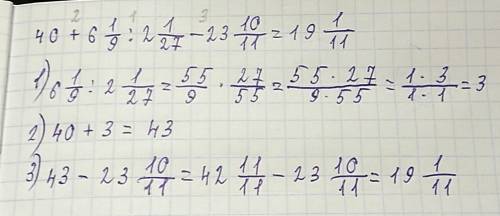 2 1 3
40 + 6 1/9 : 2 1/27 - 23 10/11 = 19 1/11
1) 6 1/9 : 2 1/27 = 55/9 · 27/55 = 55 · 27/9 · 55 = 1 · 3/1 · 1 = 3
2) 40 + 3 = 43
3) 43 - 23 10/11 = 42 11/11 - 23 10/11 = 19 1/11